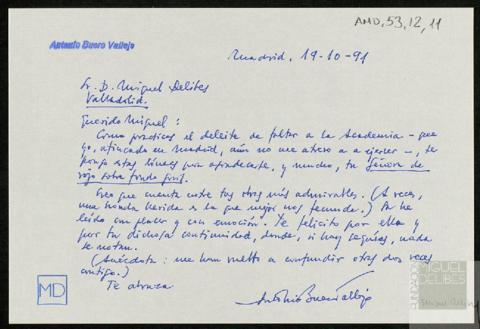 AMD,53,12,11
Antonio Buero Vallejo
Madrid, 19-10-91
Sr. D. Miguel Delibes
Valladolid.
Querido Miguel:
Como practicas el deleite de faltar a la Academia - que
yo, afincado en Madrid, aún no me atrevo a ejercer -, te
pongo estas líneas para agradecerte, y mucho, tu Señora de
rojo sobre fondo gris.
Creo que cuenta entre tus obras más admirables. (A veces,
una honda herida es la que mejor nos fecunda.) La he
leído con placer y con emoción. Te felicito por ella y
por tu dichosa continuidad, donde, si hay seguías, nada
se notan.
(Anécdota: me han vuelto a confundir otras dos veces
contigo.)
Te abraza
Antonio Buero Vallejo
MD
FUNDACIÓN
MIGUEL
DELIBES